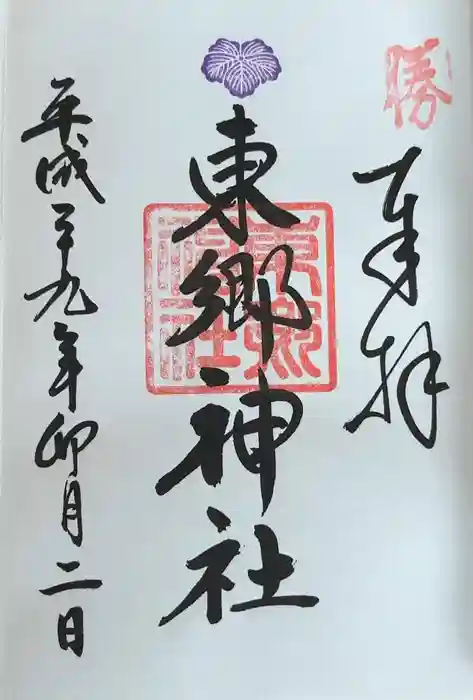 勝
奉拝
東郷神社
東郷神社
平成二九年卯月二日